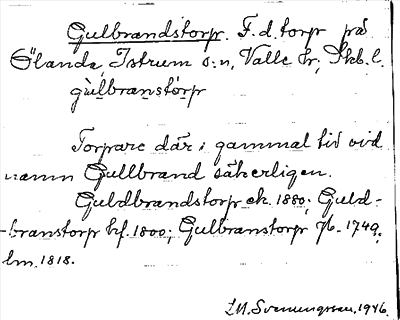 Gulbrandstorp. F.d. torp på
Ölanda, Istrum s:n, Valle hr, Skb.l.
gùlbranstórp
Torpare där i gammal tid vid
namn Gullbrand säkerligen.
Guldbrandstorp ek. 1880; Guld-
-branstorp hf. 1800; Gulbranstorp jb. 1749;
lm. 1818.
1946.